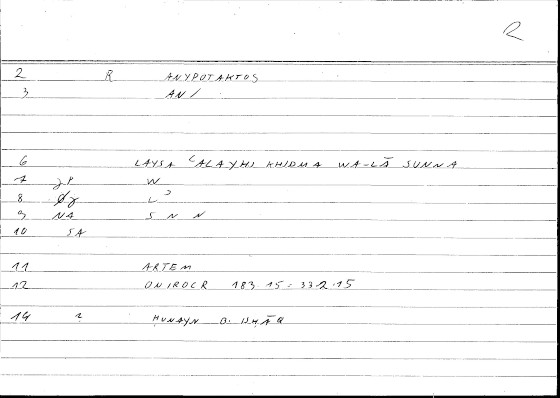 R
2 R ANYPOTAKTOS
3 AN/
6 LAYSA ʿALAYHI KHIDMA WA-LĀ SUNNA
7 JP W
8 L ʾ
9 NA S N N
10 SA
11 ARTEM
12 ONIROCR 183.15 = 332.15
14 ? ḤUNAYN B. ISḤĀQ